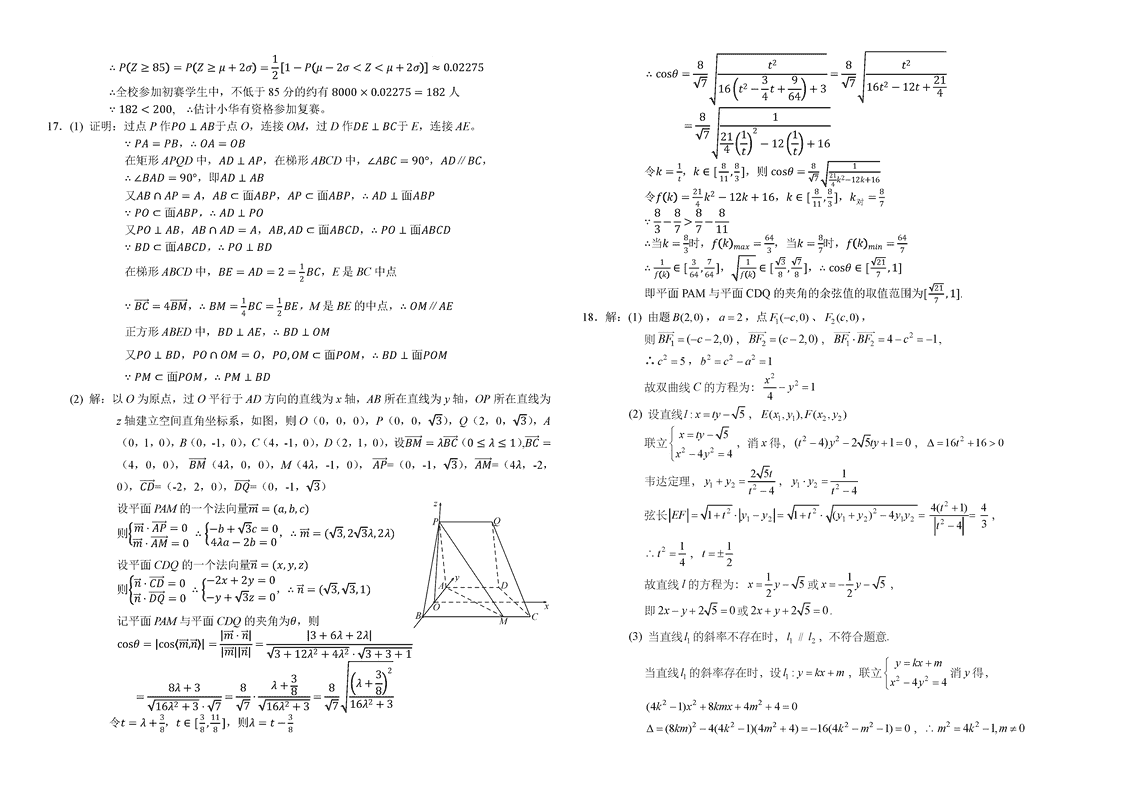 ∴ P(Z ≥ 85) = P(Z ≥ μ + 2σ) = 1/2[1 − P(μ − 2σ < Z < μ + 2σ)] ≈ 0.02275
∴全校参加初赛学生中，不低于 85 分的约有 8000 × 0.02275 = 182 人
∵ 182 < 200， ∴估计小华有资格参加复赛。
17．(1) 证明：过点 P 作PO ⊥ AB于点 O，连接 OM，过 D 作DE ⊥ BC于 E，连接 AE。
∵ PA = PB，∴ OA = OB
在矩形 APQD 中，AD ⊥ AP，在梯形 ABCD 中，∠ABC = 90°，AD∥BC，
∴ ∠BAD = 90°，即AD ⊥ AB
又AB ∩ AP = A，AB ⊂ 面ABP，AP ⊂ 面ABP，∴ AD ⊥ 面ABP
∵ PO ⊂ 面ABP，∴ AD ⊥ PO
又PO ⊥ AB，AB ∩ AD = A，AB, AD ⊂ 面ABCD，∴ PO ⊥ 面ABCD
∵ BD ⊂ 面ABCD，∴ PO ⊥ BD
在梯形 ABCD 中，BE = AD = 2 = 1/2 BC，E 是 BC 中点
∵ BC→ = 4BM→，∴ BM = 1/4 BC = 1/2 BE，M 是 BE 的中点，∴ OM∥AE
正方形 ABED 中，BD ⊥ AE，∴ BD ⊥ OM
又PO ⊥ BD，PO ∩ OM = O，PO, OM ⊂ 面POM，∴ BD ⊥ 面POM
∵ PM ⊂ 面POM，∴ PM ⊥ BD
(2) 解：以 O 为原点，过 O 平行于 AD 方向的直线为 x 轴，AB 所在直线为 y 轴，OP 所在直线为
z 轴建立空间直角坐标系，如图，则 O（0，0，0），P（0，0，√3），Q（2，0，√3），A
（0，1，0），B（0，-1，0），C（4，-1，0），D（2，1，0），设BM→ = λBC→（0 ≤ λ ≤ 1）,BC→ =
（4，0，0）， BM→（4λ，0，0），M（4λ，-1，0）， AP→=（0，-1，√3），AM→=（4λ，-2，
0），CD→=（-2，2，0），DQ→=（0，-1，√3）
设平面 PAM 的一个法向量m→ = (a, b, c)
则{m→ · AP→ = 0, m→ · AM→ = 0 ∴ {−b + √3c = 0, 4λa − 2b = 0，∴ m→ = (√3, 2√3λ, 2λ)
设平面 CDQ 的一个法向量n→ = (x, y, z)
则{n→ · CD→ = 0, n→ · DQ→ = 0 ∴ {−2x + 2y = 0, −y + √3z = 0，∴ n→ = (√3, √3, 1)
记平面 PAM 与平面 CDQ 的夹角为θ，则
cosθ = |cos⟨m→,n→⟩| = |m→ · n→|/(|m→||n→|) = |3 + 6λ + 2λ|/(√(3 + 12λ² + 4λ²) · √(3 + 3 + 1))
= (8λ + 3)/(√(16λ² + 3) · √7) = 8/√7 · (λ + 3/8)/√(16λ² + 3) = 8/√7 √((λ + 3/8)²/(16λ² + 3))
令t = λ + 3/8，t ∈ [3/8, 11/8]，则λ = t − 3/8
z
P
Q
A
y
D
O
x
B
M
C
∴ cosθ = 8/√7 √(t²/(16(t² − 3/4 t + 9/64) + 3)) = 8/√7 √(t²/(16t² − 12t + 21/4))
= 8/√7 √(1/(21/4 (1/t)² − 12(1/t) + 16))
令k = 1/t，k ∈ [8/11, 8/3]，则 cosθ = 8/√7 √(1/(21/4 k² − 12k + 16))
令f(k) = 21/4 k² − 12k + 16，k ∈ [8/11, 8/3]，k对 = 8/7
∵ 8/3 − 8/7 > 8/7 − 8/11
∴当k = 8/3时，f(k)max = 64/3，当k = 8/7时，f(k)min = 64/7
∴ 1/f(k) ∈ [3/64, 7/64]，√(1/f(k)) ∈ [√3/8, √7/8]，∴ cosθ ∈ [√21/7, 1]
即平面 PAM 与平面 CDQ 的夹角的余弦值的取值范围为[√21/7, 1].
18．解：(1) 由题 B(2,0)，a = 2，点 F₁(−c,0)、F₂(c,0)，
则 BF₁→ = (−c−2,0)，BF₂→ = (c−2,0)，BF₁→ · BF₂→ = 4 − c² = −1，
∴ c² = 5，b² = c² − a² = 1
故双曲线 C 的方程为：x²/4 − y² = 1
(2) 设直线 l : x = ty − √5，E(x₁, y₁), F(x₂, y₂)
联立 {x = ty − √5, x² − 4y² = 4，消 x 得，(t² − 4)y² − 2√5ty + 1 = 0，Δ = 16t² + 16 > 0
韦达定理，y₁ + y₂ = 2√5t/(t² − 4)，y₁ · y₂ = 1/(t² − 4)
弦长 |EF| = √(1 + t²) · |y₁ − y₂| = √(1 + t²) · √((y₁ + y₂)² − 4y₁y₂) = 4(t² + 1)/|t² − 4| = 4/3，
∴ t² = 1/4，t = ±1/2
故直线 l 的方程为：x = 1/2 y − √5 或 x = −1/2 y − √5，
即 2x − y + 2√5 = 0 或 2x + y + 2√5 = 0．
(3) 当直线 l₁ 的斜率不存在时，l₁ ∥ l₂，不符合题意.
当直线 l₁ 的斜率存在时，设 l₁ : y = kx + m，联立 {y = kx + m, x² − 4y² = 4 消 y 得，
(4k² − 1)x² + 8kmx + 4m² + 4 = 0
Δ = (8km)² − 4(4k² − 1)(4m² + 4) = −16(4k² − m² − 1) = 0，∴ m² = 4k² − 1, m ≠ 0